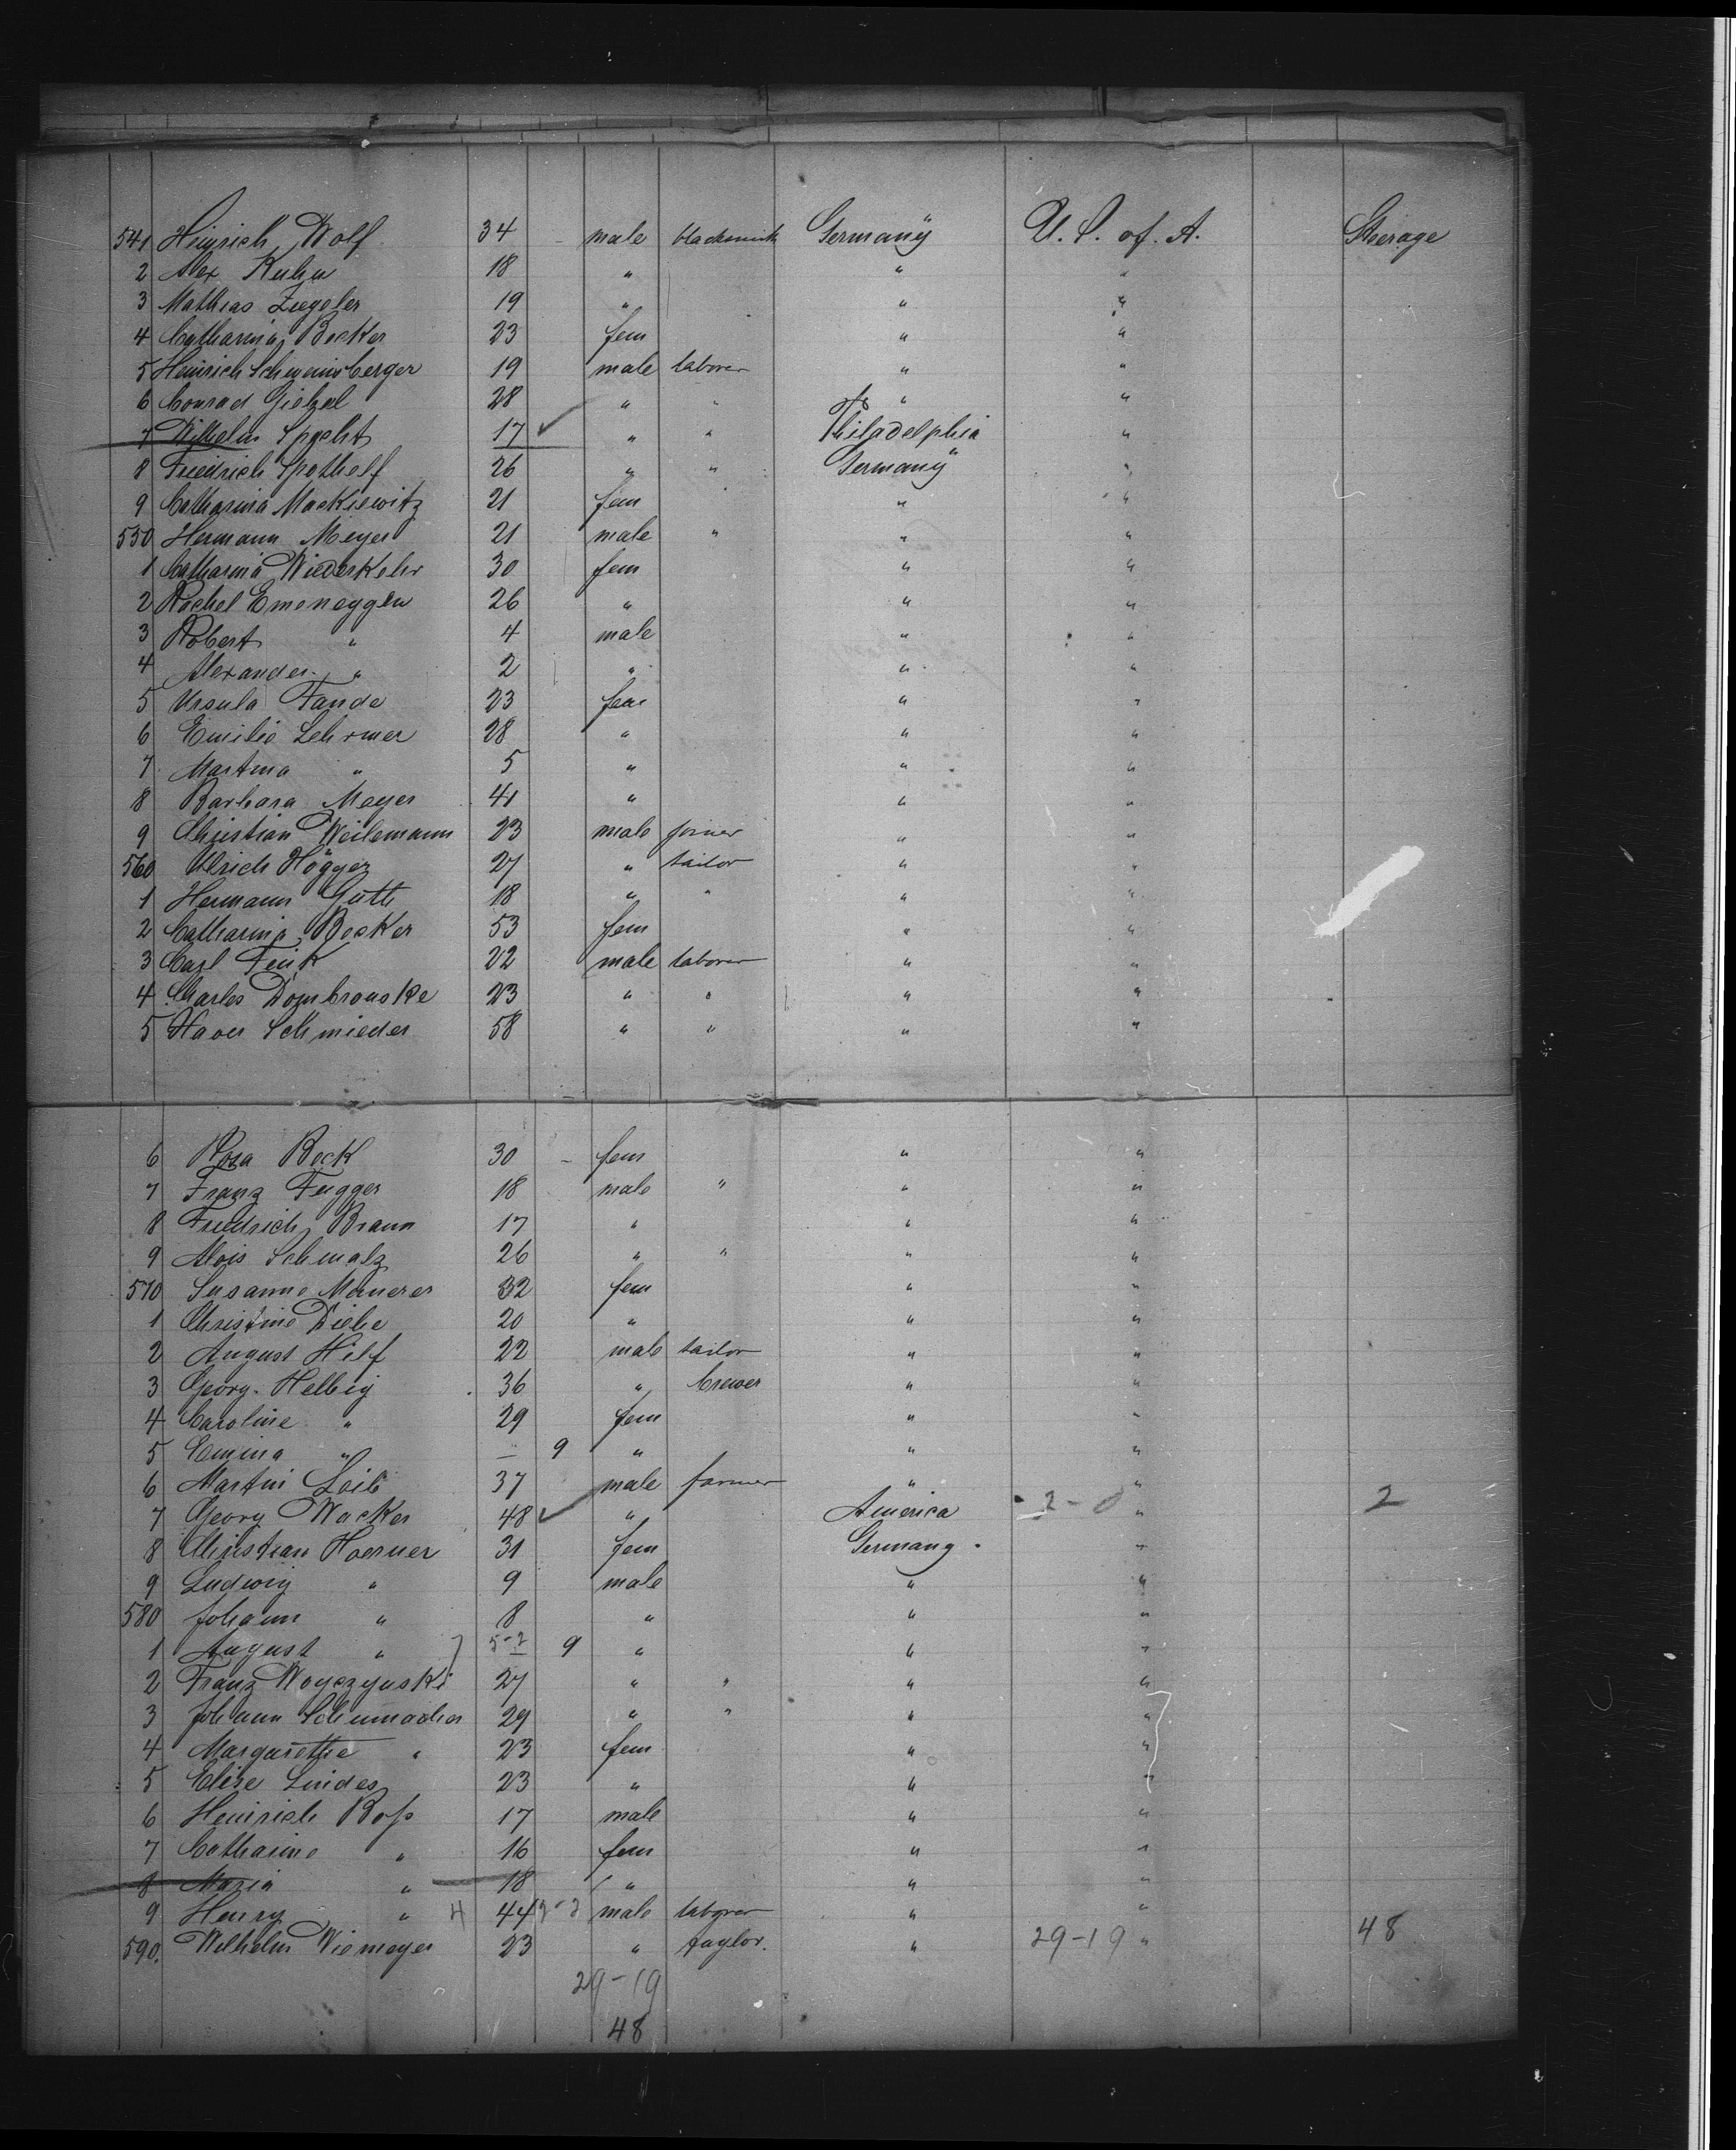 541 Heinrich Wolf 34 male blacksmith Germany U.S. of. A. Steerage
2 Alex Kuhn 18 " " "
3 Mathias Ziegeler 19 " " "
4 Catharina Becker 23 fem " "
5 Heinrich Schweinsberger 19 male laborer " "
6 Conrad Gietzel 28 " " " "
7 Wilhelm Specht 17 " " Philadelphia "
8 Friedrich Spothelf 26 " " Germany "
9 Catharina Mackiewitz 21 fem " "
550 Hermann Meyer 21 male " " "
1 Catharina Wiederkehr 30 fem " "
2 Rachel Emeneggen 26 " " "
3 Robert " 4 male " "
4 Alexander " 2 " " "
5 Ursula Fande 23 fem " "
6 Emilie Lehrmer 28 " " "
7 Martina " 5 " " "
8 Barbara Mayer 41 " " "
9 Christian Weilemann 23 male joiner " "
560 Ulrich Högger 27 " tailor " "
1 Hermann Guth 18 " " " "
2 Catharina Becker 53 fem " "
3 Carl Feik 22 male laborer " "
4 Charles Dombrouske 23 " " " "
5 Xaver Schmieder 58 " " " "
6 Rosa Beck 30 fem " "
7 Franz Fugger 18 male " " "
8 Friedrich Braun 17 " " "
9 Alois Schmalz 26 " " " "
570 Susanne Maurer 32 fem " "
1 Christine Diehe 20 " " "
2 August Hilf 22 male tailor " "
3 Georg. Helbig 36 " brewer " "
4 Caroline " 29 fem " "
5 Emma " – 9 " " "
6 Martin Leib 37 male farmer " "
7 Georg Wacker 48 " America 2-0 " 2
8 Christian Hoerner 31 fem Germany "
9 Ludwig " 9 male " "
580 Johann " 8 " " "
1 August " 9 " " "
2 Franz Woyczynski 27 " " " "
3 Johann Schumacher 29 " " " "
4 Margarethe " 23 fem " "
5 Elise Linder 23 " " "
6 Heinrich Boſs 17 male " "
7 Catharine " 16 fem " "
8 Maria " 18 " " "
9 Henry " 44 male laborer " "
590. Wilhelm Wiemeyer 23 " taylor. " 29-19 " 48
29-19
48